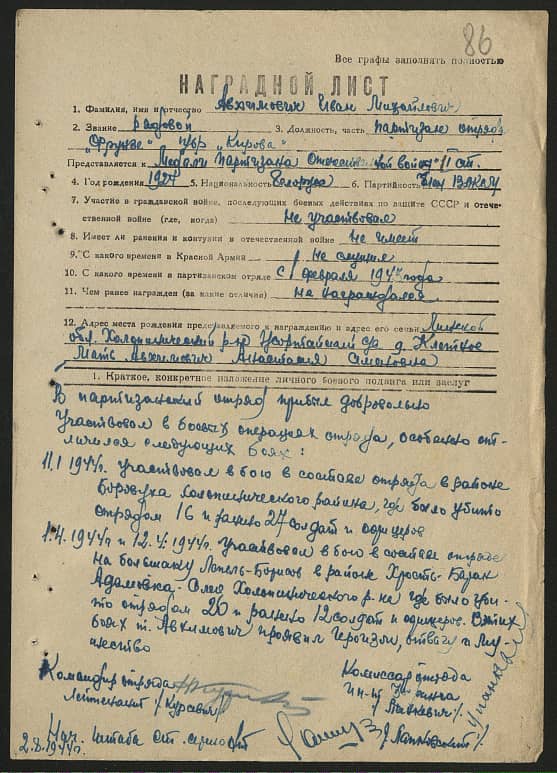 86
Все графы заполнять полностью
НАГРАДНОЙ ЛИСТ
1. Фамилия, имя и отчество Авхимович Иван Михайлович
2. Звание рядовой 3. Должность, часть партизан отряда
"Фрунзе" п/бр "Кирова"
Представляется к Медали Партизана Отечественной войны II ст.
4. Год рождения 1927 5. Национальность белорусс 6. Партийность Член ВЛКСМ
7. Участие в гражданской войне, последующих боевых действиях по защите СССР и отече-
ственной войне (где, когда) Не участвовал
8. Имеет ли ранения и контузии в отечественной войне Не имеет
9. С какого времени в Красной Армии Не служил
10. С какого времени в партизанском отряде С февраля года
11. Чем ранее награжден (за какие отличия) Не награждался
12. Адрес места рождения представляемого к награждению и адрес его семьи Минской
обл. Холопинический р-н д.
Мать Авхимович Анастасия
1. Краткое, конкретное изложение личного боевого подвига или заслуг
В партизанский отряд прибыл добровольно
Участвовал в боевых операциях отряда, особенно от-
личился следующих боях:
11.1 1944г. участвовал в бою в составе отряда в районе
Боровуха холопинического района, где было убито
отрядом 16 и ранено 27 солдат и офицеров
1.4. 1944г и 12.4. 1944г. Участвовал в бою в составе отряда
на большаку Лепель-Борисов в районе
Адамовка Холопинического р-на где было уби-
то отрядом 20 и ранено 12 солдат и офицеров. В этих
боях т. Авхимович проявил героизм, отвагу и му-
жество
Командир отряда
Лейтенант
Комиссар отряда
Нач. штаба от.
2.8.1944г.